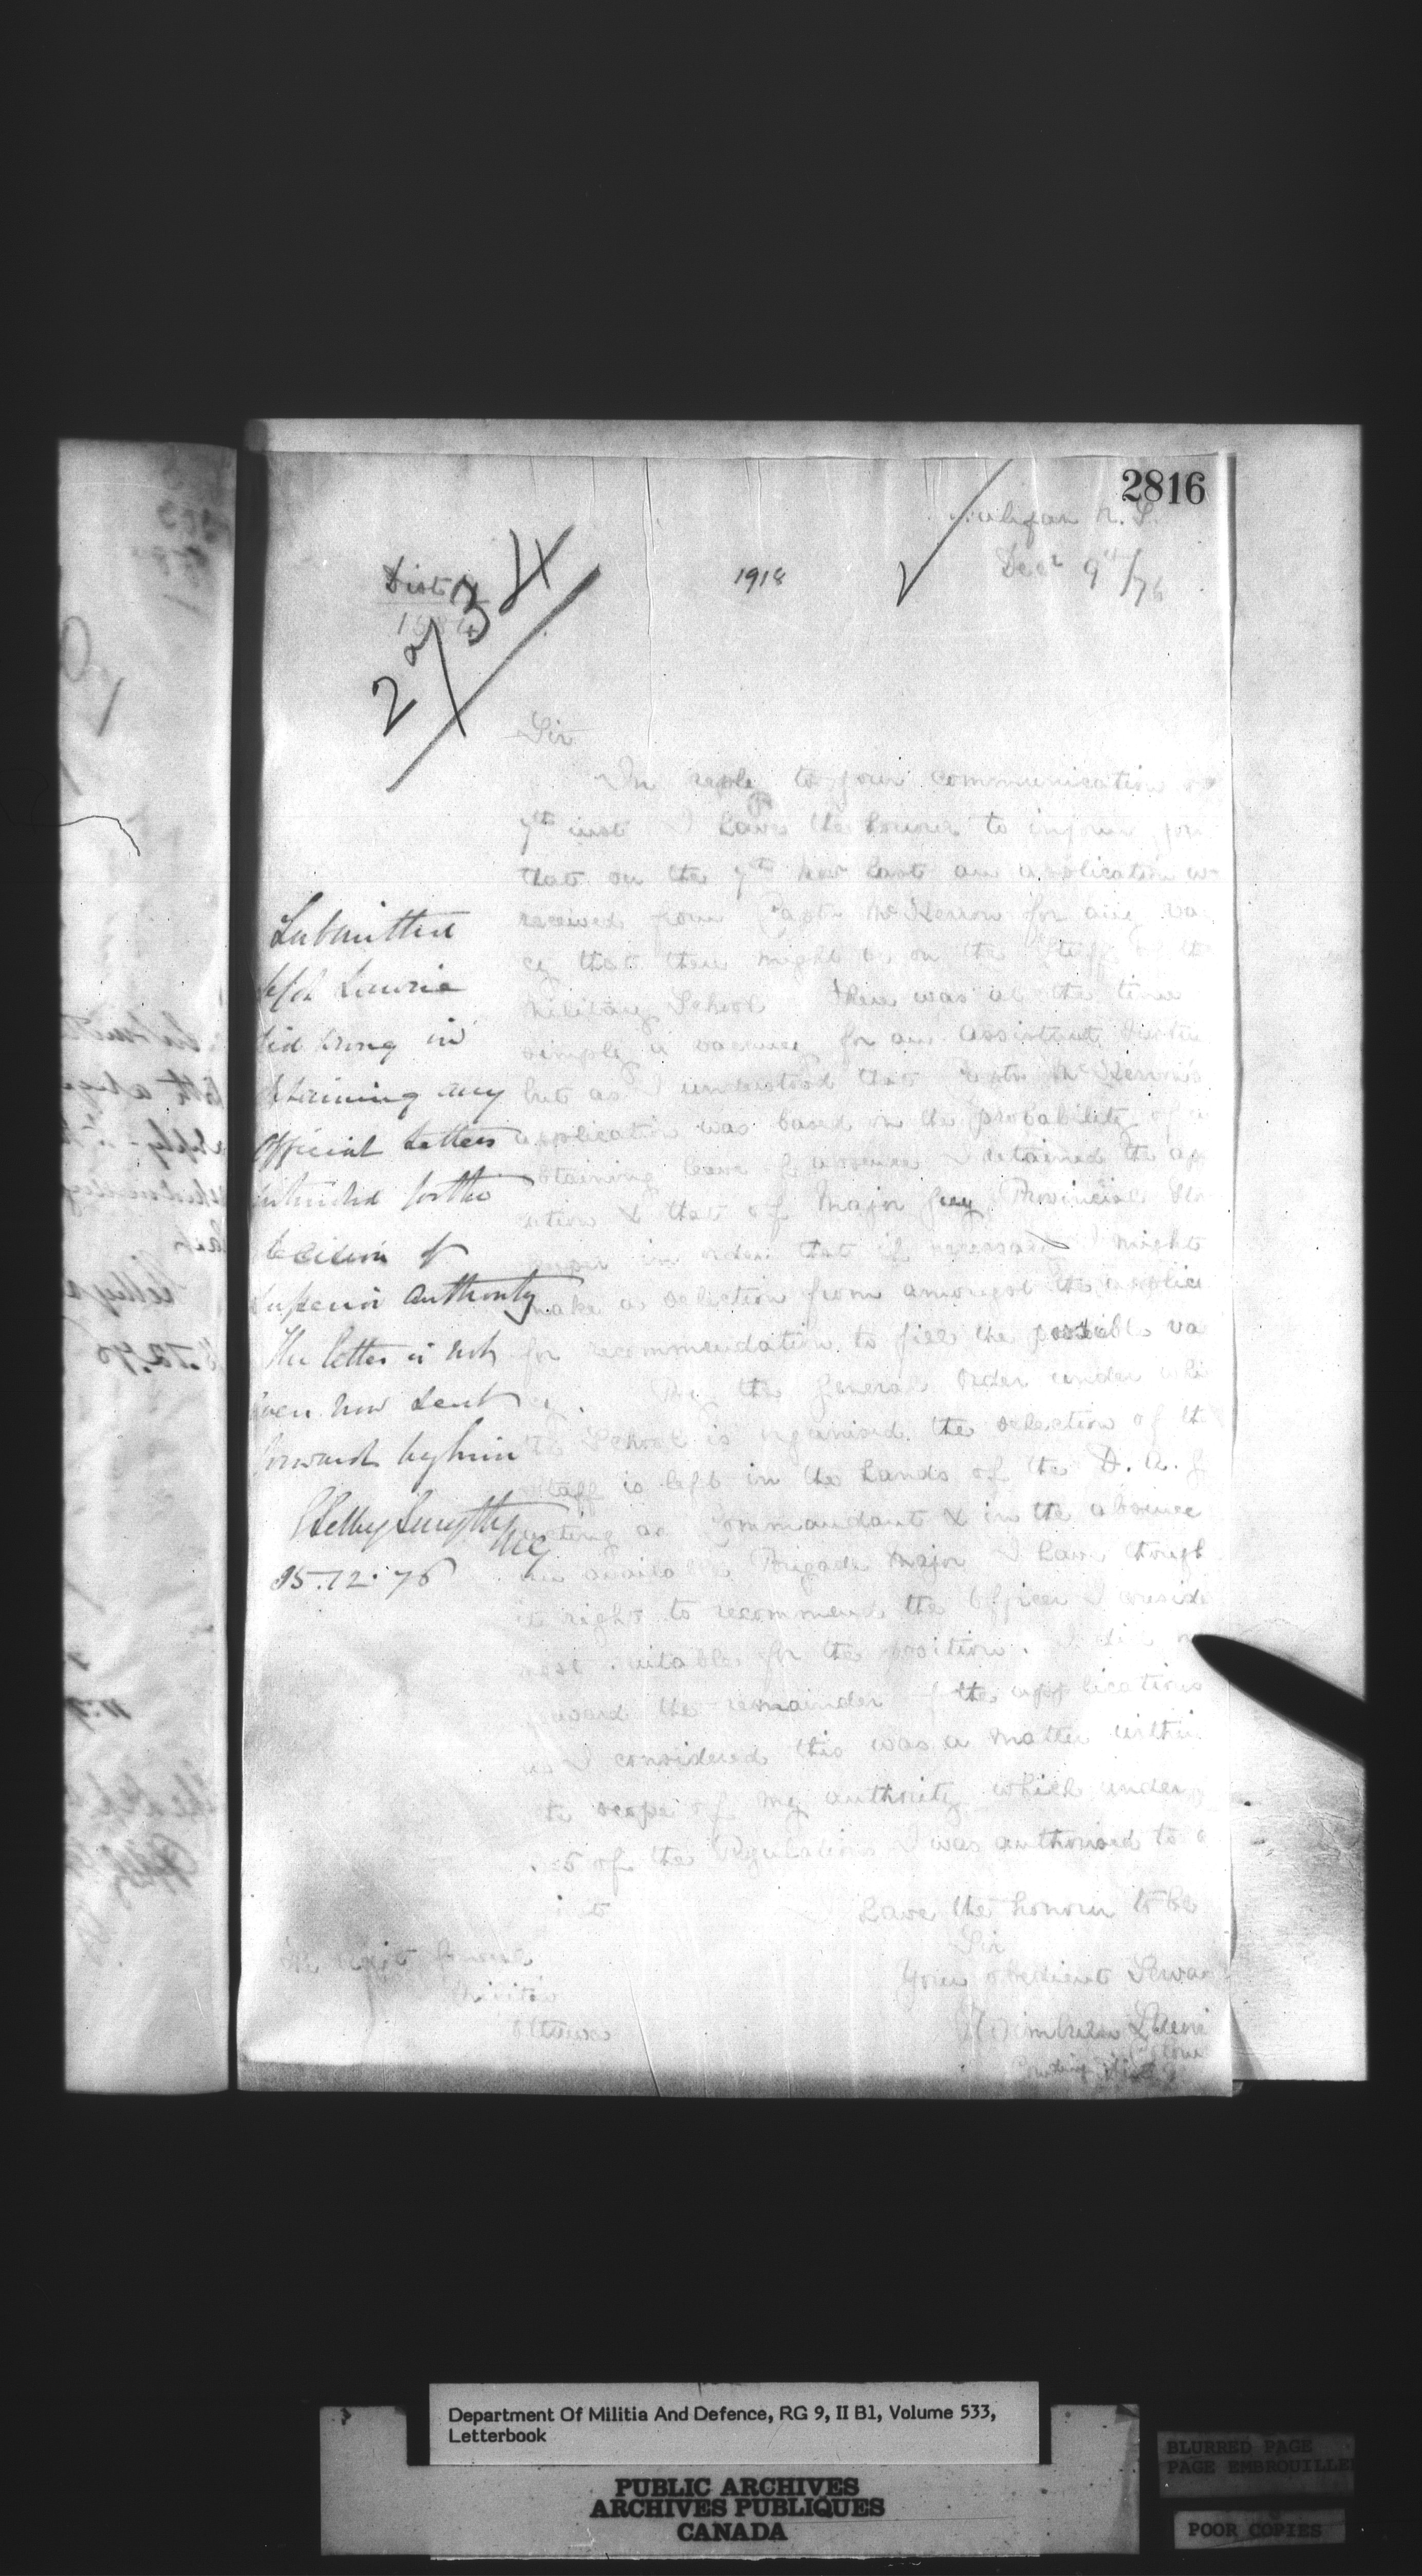 2816
Halifax N. S.
Decr 9th/76
Dist
1918
2734
Sir
In reply to your communication of
7th inst I have the honour to inform you
that on the 7th Nov last an application w
received from Captn McKerron for any va
cy that there might be on the Staff of th
Military School There was at the time
simply a vacancy for an assistant
but as I understood that Captn McKerron's
application was based on the probability of
obtaining leave of absence I detained the ap
ation & that of Major Guy Provincial Sto
keeper in order that if necessary I might
make a selection from amongst the applica
for recommendation to fill the possible va
cy. By the General Order under whi
the School is organised the selection of th
Staff is left in the hands of the D. A. G
acting as Commandant & in the absence
an available Brigade Major I have though
it right to recommend the Officer I conside
most suitable for the position. I did n
forward the remainder of the applications
as I considered this was a matter within
the scope of my authority which under
of the Regulations I was authorised to
I have the honour to be
Sir
Your obedient Servan
Wimburn Laurie
Comding
The Adjt General
Militia
Ottawa
Submitted
Col Laurie
did wrong in
detaining any
Official Letters
intended for the
decision of
superior authority
The letter is not
even now sent
forward by him
E Selby Smyth
MG
15.12.76
Department Of Militia And Defence, RG 9, II B1, Volume 533,
Letterbook
PUBLIC ARCHIVES
ARCHIVES PUBLIQUES
CANADA
BLURRED PAGE
PAGE EMBROUILLEE
POOR COPIES